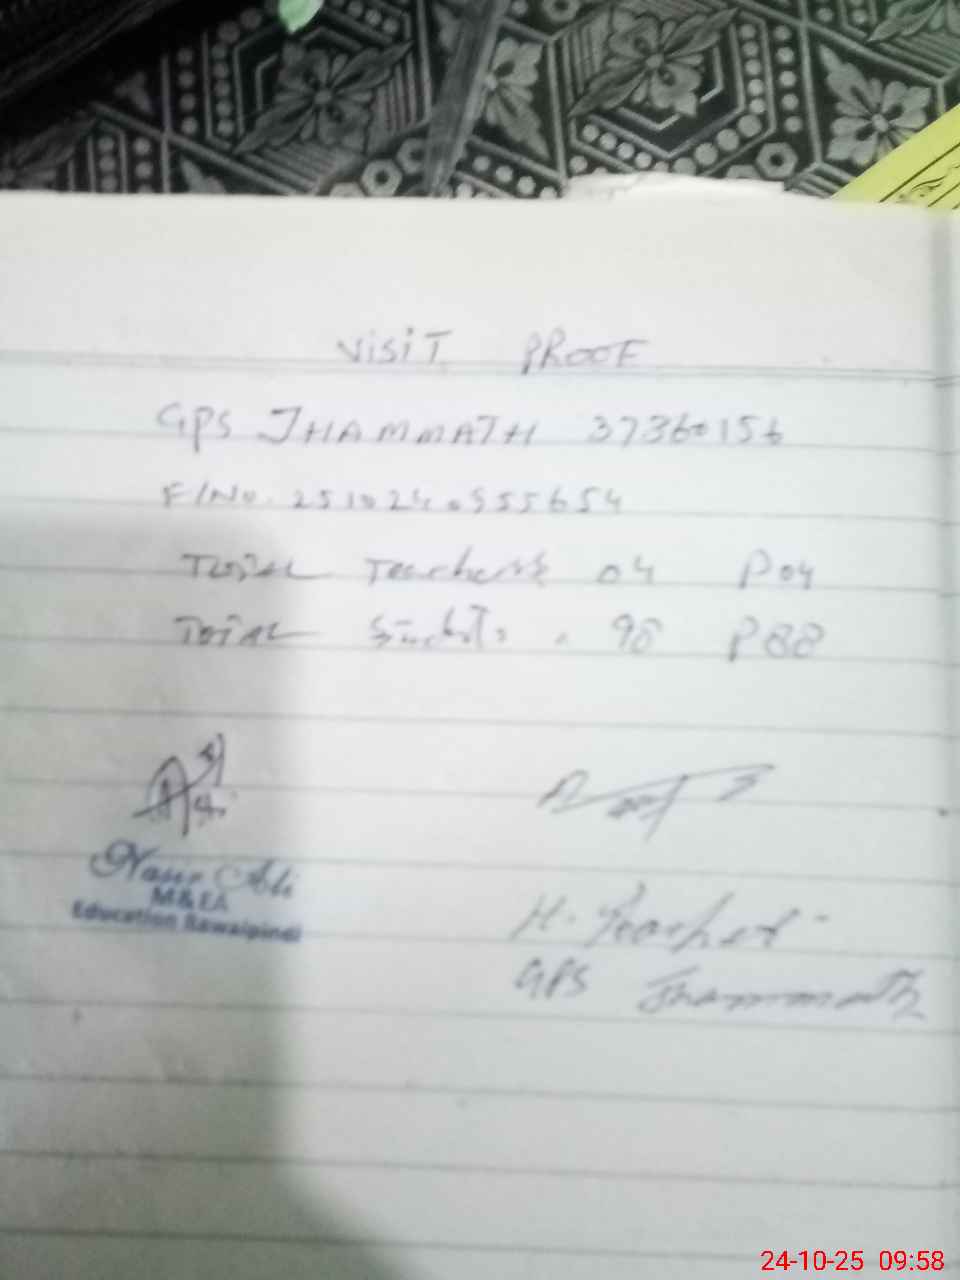 VISIT PROOF
GPS JHAMMATH 37360156
F/No. 2510240955654
TOTAL Teachers 04 P04
TOTAL Students. 98 P88
Nasir Ali
M&EA
Education Rawalpindi
H. Teacher
GPS Jhammath
24-10-25 09:58